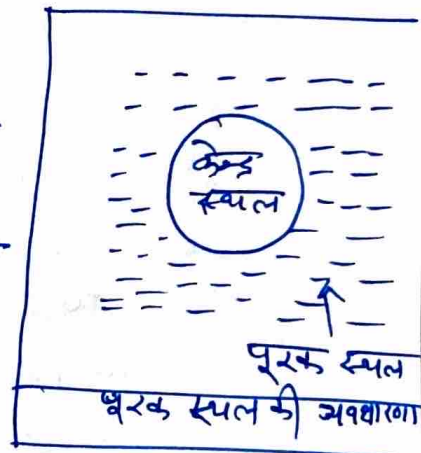 केन्द्र
स्थल
पूरक स्थल
पूरक स्थल की अवधारणा